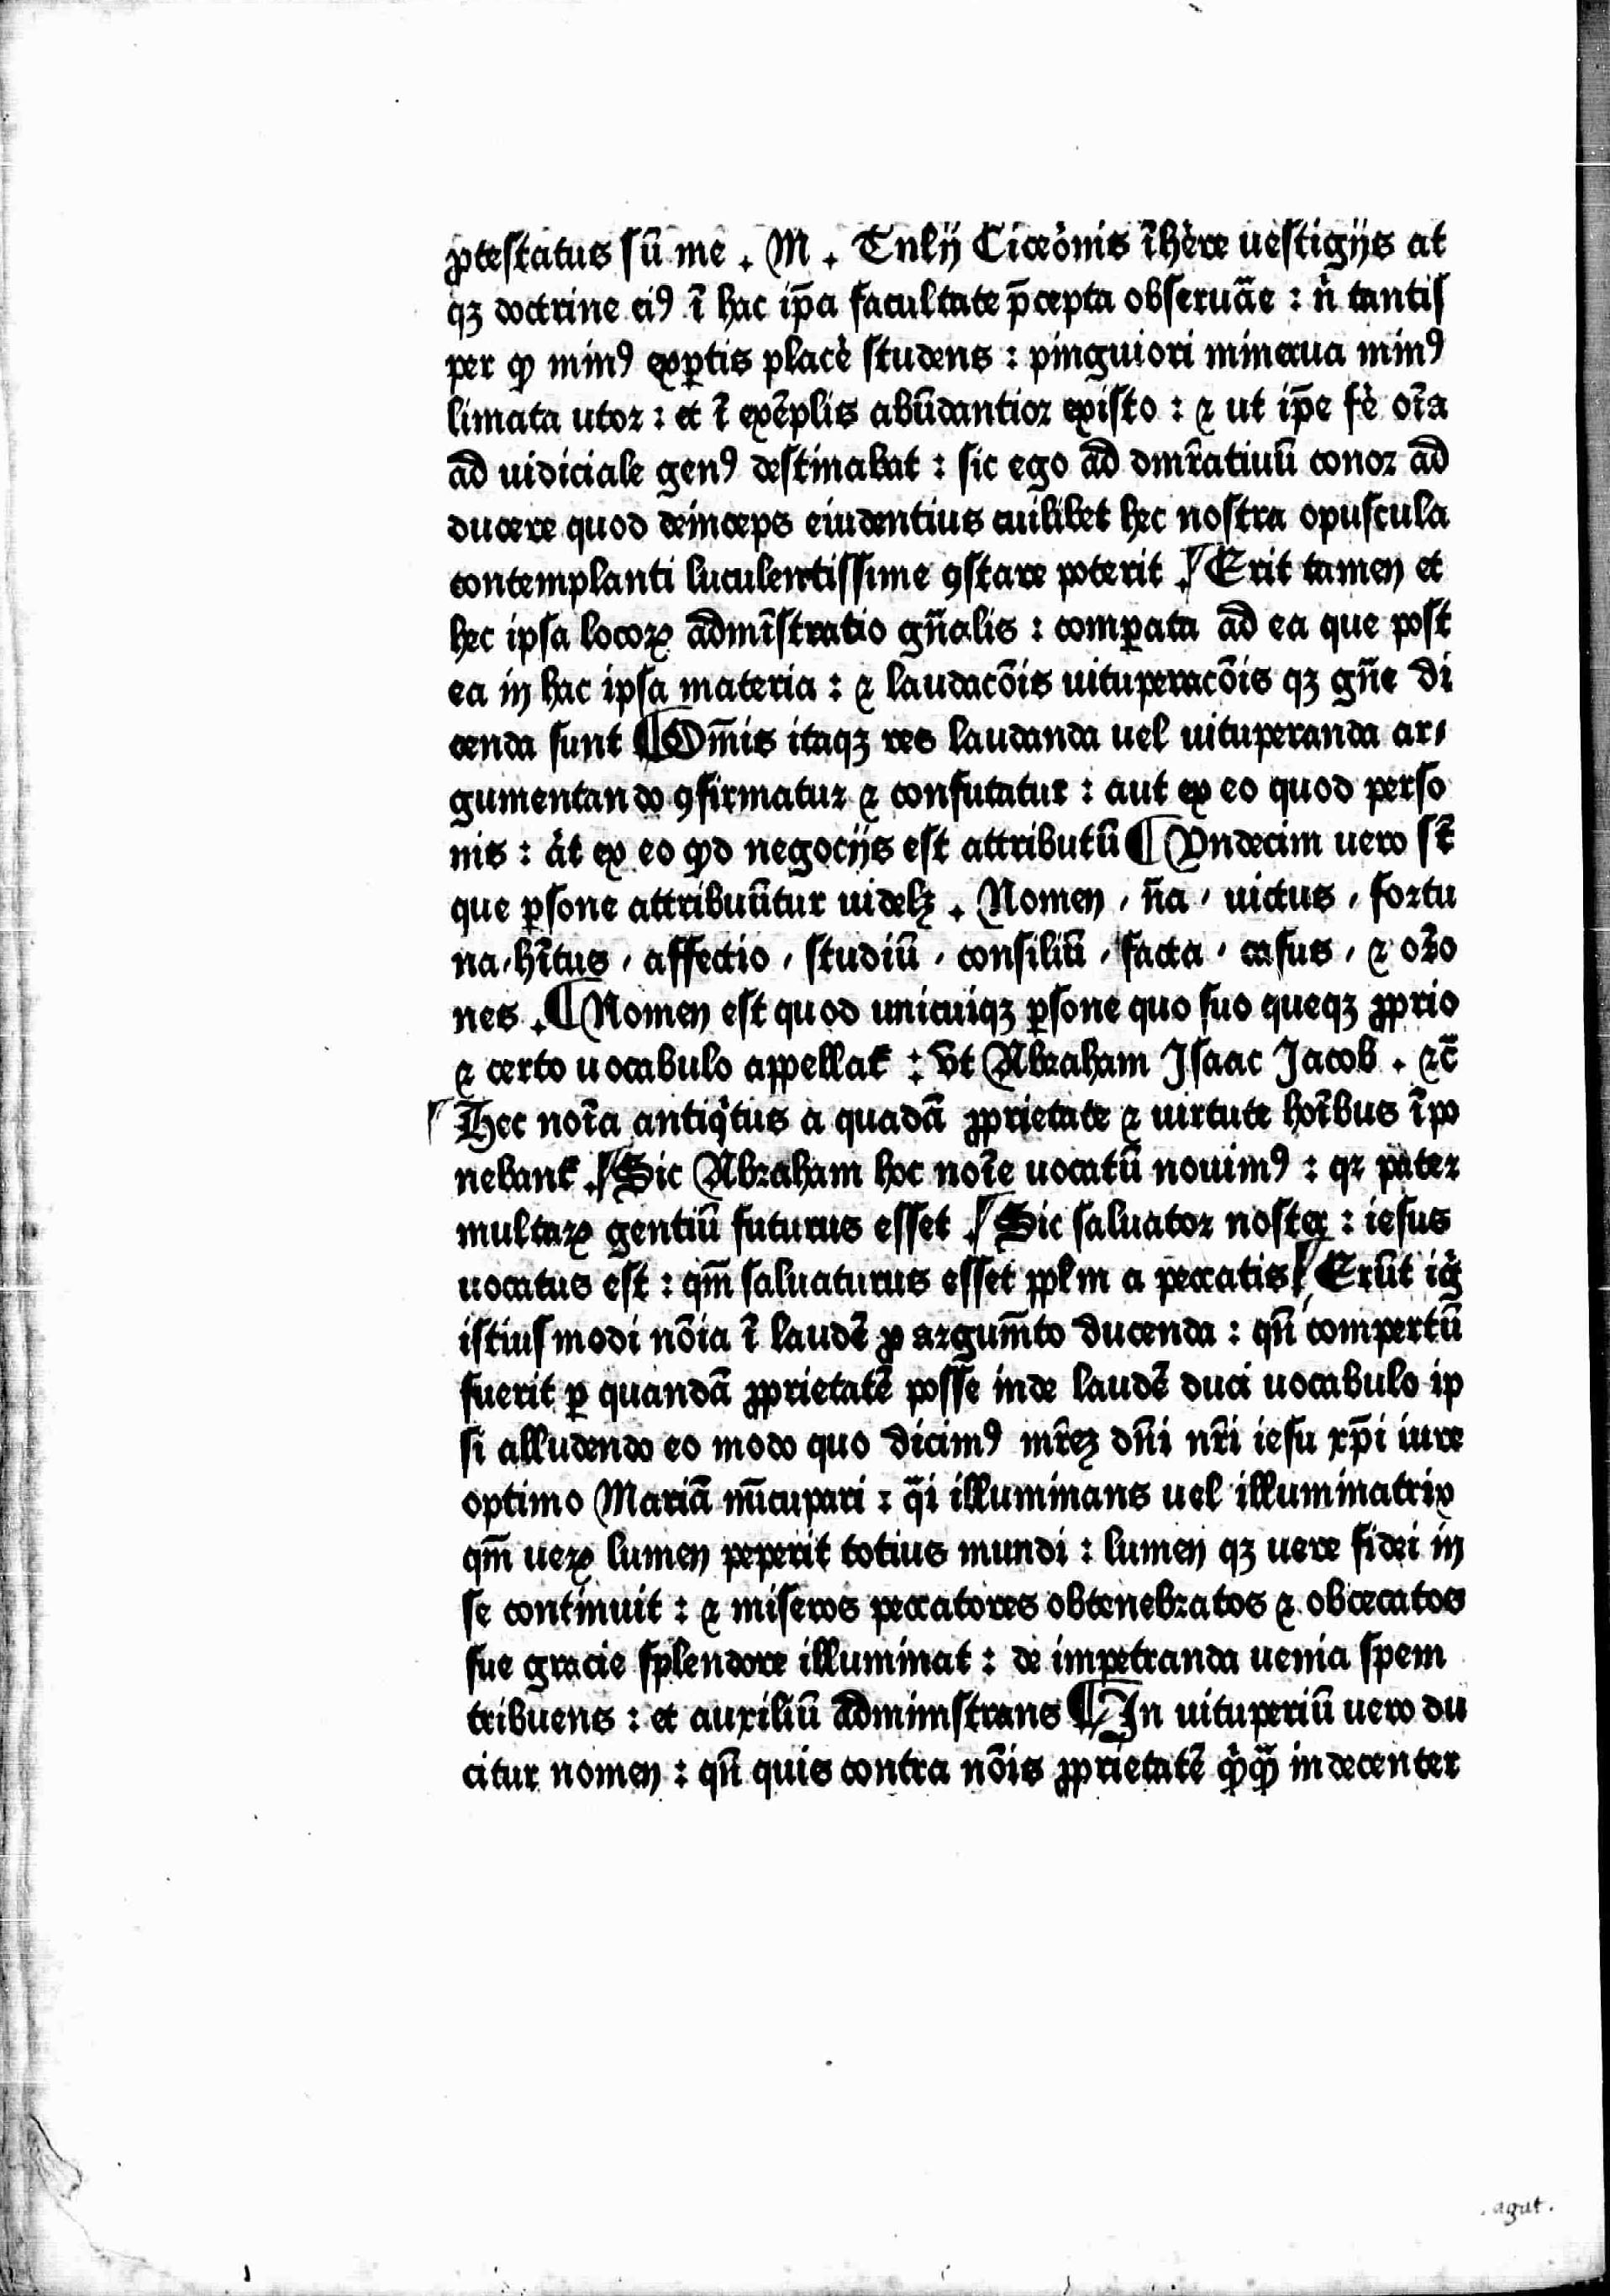 ꝓtestatus sū me . M . Tulij Ciceōnis īhēre uestigijs at
qꝫ doctrine eiꝰ ī hac ip̄a facultate p̄cepta obseruāe : n̄ tantiſ
per ꝙ minꝰ exꝑtis placē studens : pinguiori minerua minꝰ
limata utor : et ī exēplis abūdantior existo : ⁊ ut ip̄e fē oīa
ad uidiciale genꝰ destinabat : sic ego ad dmr̄atiuū conor ad
ducere quod deinceps eiudentius cuilibet hec nostra opuscula
contemplanti luculentissime ꝯstare poterit . Erit tamen et
hec ipsa locoꝝ admīstratio gn̄alis : comꝑata ad ea que post
ea in hac ipsa materia : ⁊ laudacōis uituperacōis qꝫ gn̄e di
cenda sunt ¶ Om̄is itaqꝫ res laudanda uel uituperanda ar⸗
gumentando ꝯfirmatur ⁊ confutatur : aut ex eo quod perso
nis : āt ex eo ꝙd negocijs est attributū ¶ Vndecim uero st̄
que ꝑsone attribuūtur uidelꝫ . Nomen , n̄a , uictus , fortu
na , hītus , affectio , studiū , consiliū , facta , casus , ⁊ or̄o
nes . ¶ Nomen est quod unicuiqꝫ ꝑsone quo suo queqꝫ ꝓprio
⁊ certo uocabulo appellat᷑ : vt Abraham Isaac Jacob . ⁊c̄
Hec noīa antiq̇tus a quadā ꝓprietate ⁊ uirtute hoībus īpo
nebant᷑ . Sic Abraham hoc noīe uocatū nouimꝰ : qꝛ pater
multaꝝ gentiū futurus esset . Sic saluator noster : iesus
uocatus est : qm̄ saluaturus esset ppl̄m a peccatis . Erūt ig̊
istiusmodi nōia ī laudē ꝓ argum̄to ducenda : qn̄ compertū
fuerit ꝑ quandā ꝓprietatē posse inde laudē duci uocabulo ip
si alludendo eo modo quo dicimꝰ mr̄eꝫ dn̄i nr̄i iesu xp̄i iure
optimo Mariā nūcupari : q̄i illuminans uel illuminatrix
qm̄ ueꝝ lumen peperit totius mundi : lumen qꝫ uere fidei in
se continuit : ⁊ miseros peccatores obtenebratos ⁊ obcecatos
sue gracie splendore illuminat : de impetranda uenia spem
tribuens : et auxiliū administrans ¶ In uituperiū uero du
citur nomen : qn̄ quis contra nōis ꝓprietatē ꝙ̇ꝙ̄ indecenter
. agut .